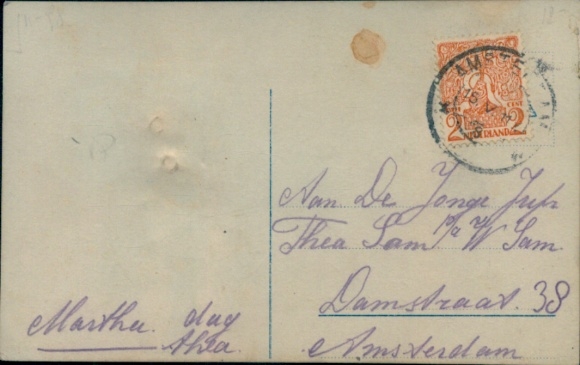 Martha. dag
thea.
AMSTERDAM
2 CENT 2
NEDERLAND
Aan De Jonge Jufr
Thea Sam p/a W Sam.
Damstraat. 38
Amsterdam